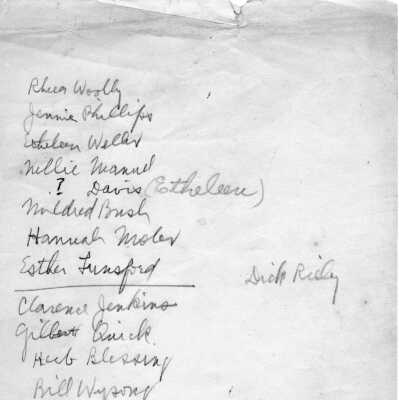 Rhea Woolly
Jennie Phillips
Etheleen Weller
Nellie Manuel
? Davis (Etheleen)
Mildred Bush
Hannah Moler
Esther Funsford
Dick Risly
Clarence Jenkins
Gilbert Quick.
Herb Blessing
Bill Wysong